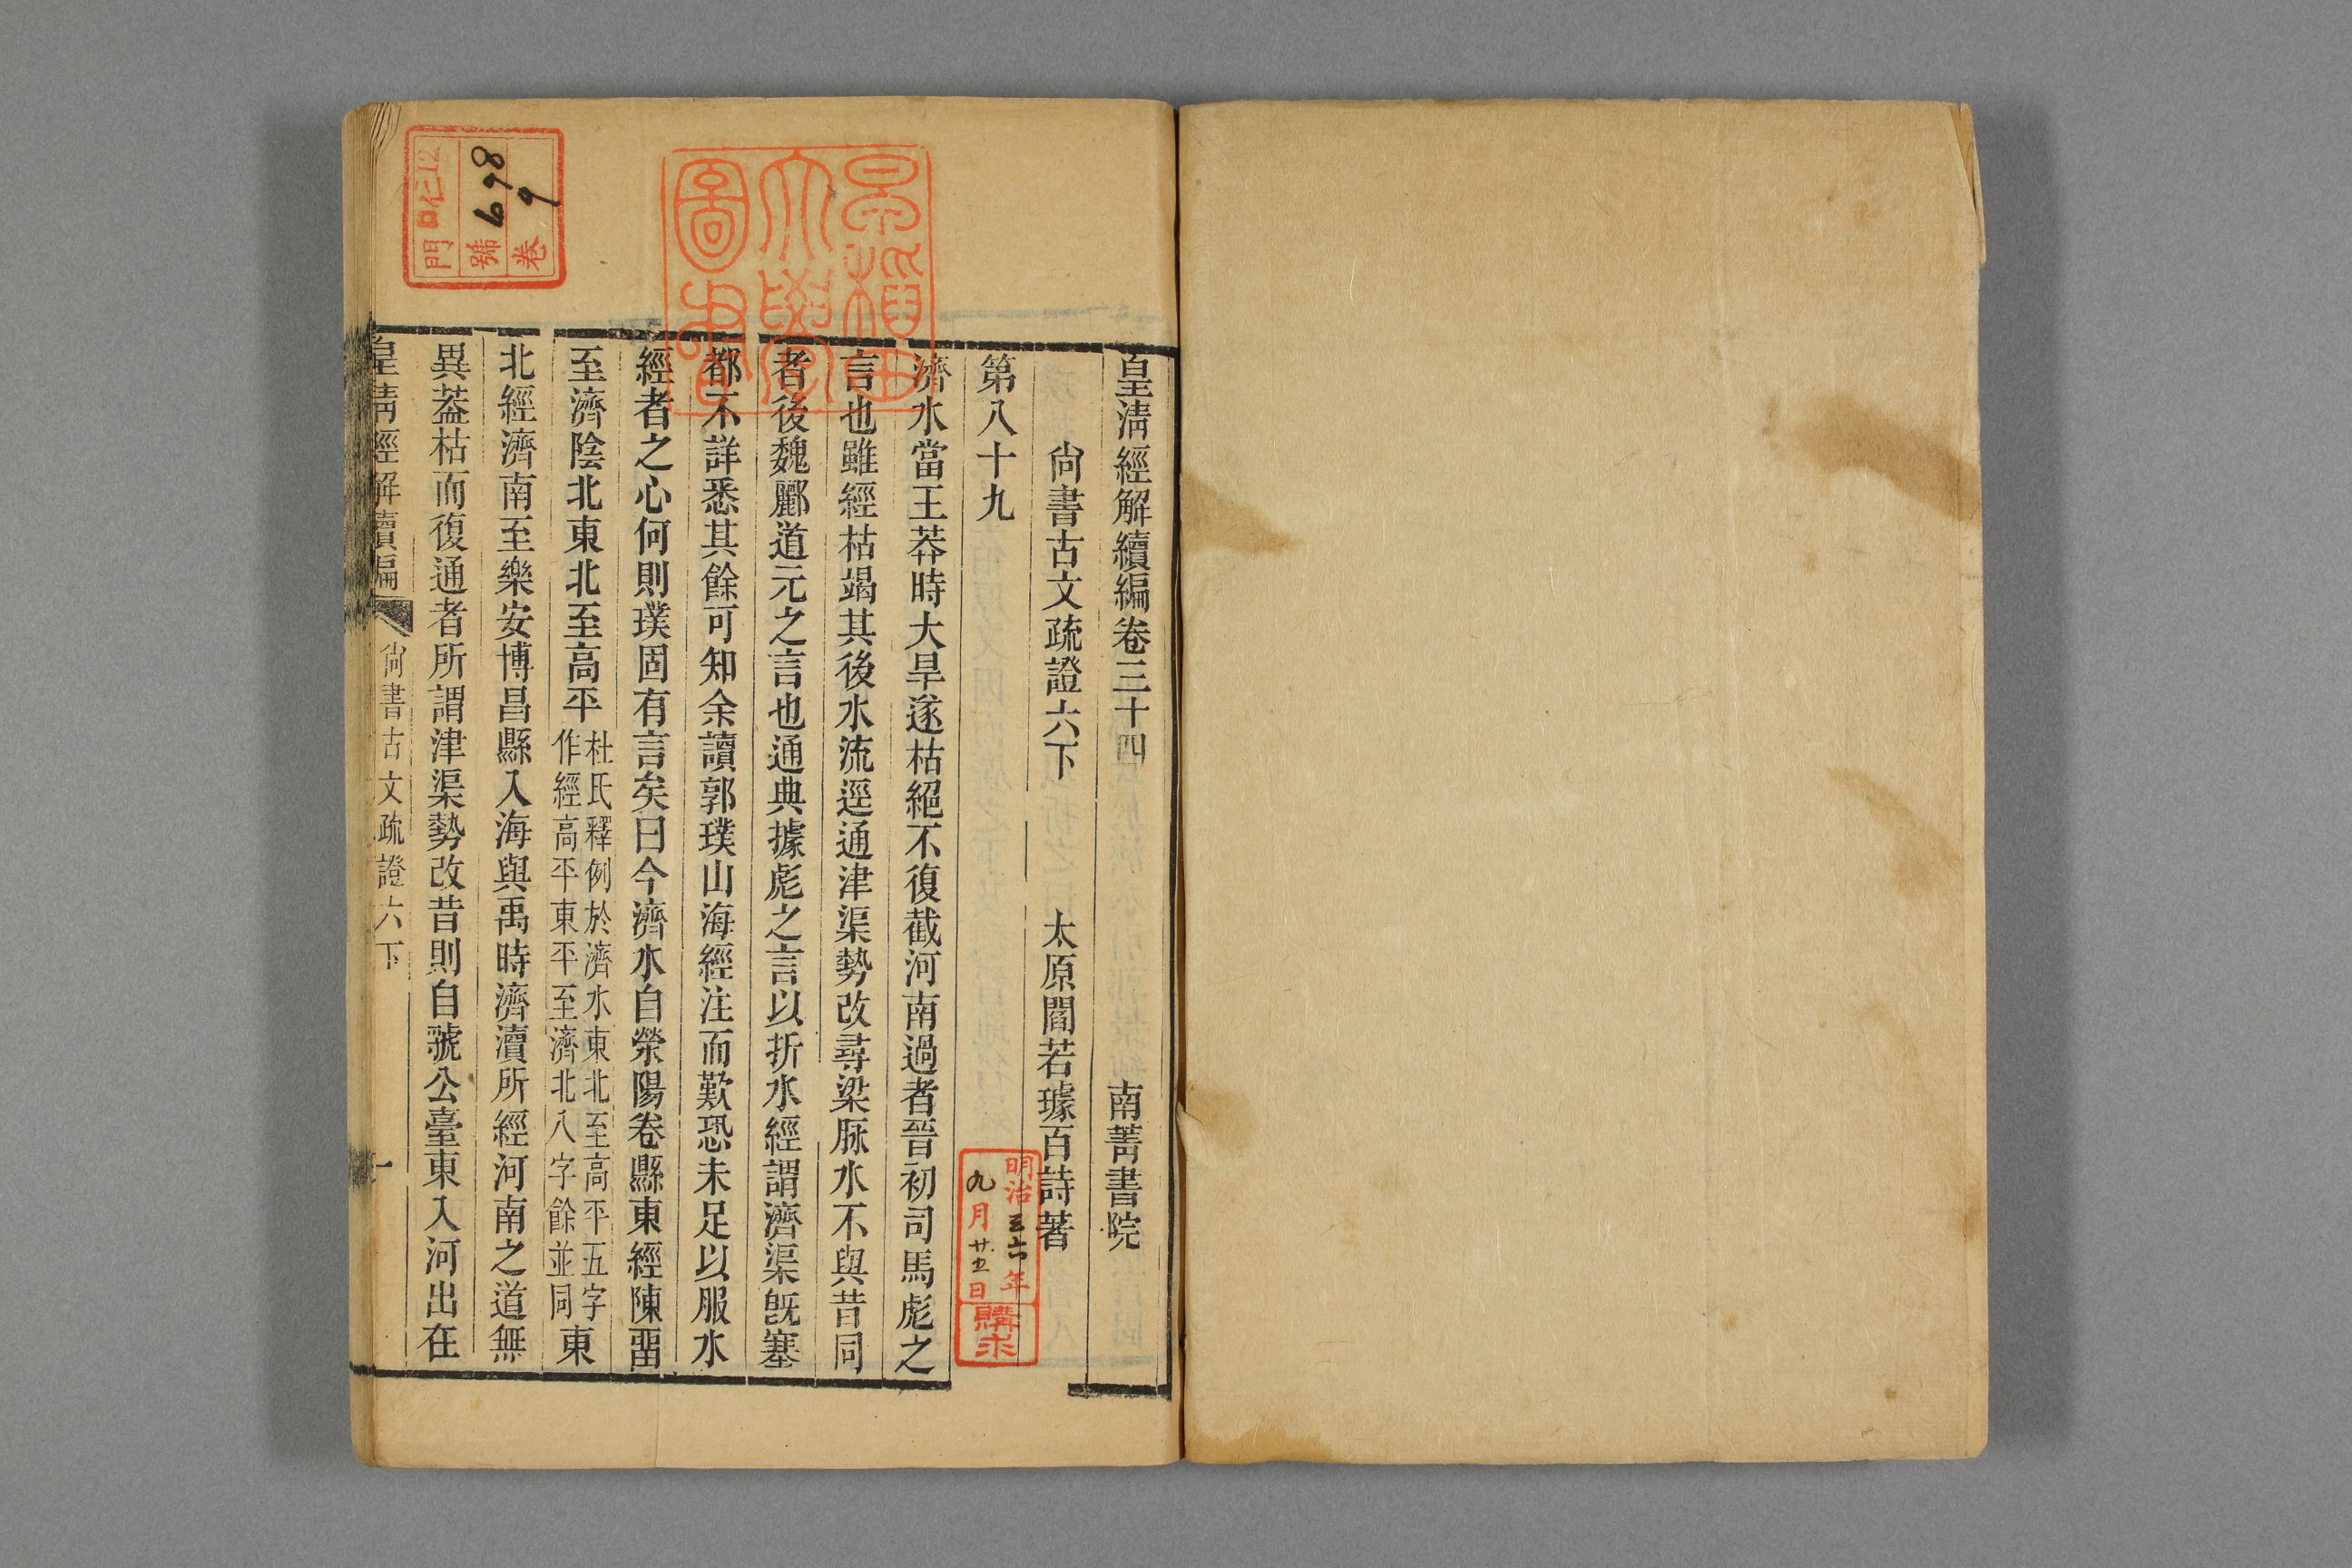 皇清經解續編卷三十四
南菁書院
尙書古文疏證六下
太原閻若璩百詩著
第八十九
濟水當王莽時大旱遂枯絕不復截河南過者晉初司馬彪之
言也雖經枯竭其後水流逕通津渠勢改尋梁脈水不與昔同
者後魏酈道元之言也通典據彪之言以折水經謂濟渠旣塞
都不詳悉其餘可知余讀郭璞山海經注而歎恐未足以服水
經者之心何則璞固有言矣曰今濟水自滎陽卷縣東經陳畱
至濟陰北東北至高平杜氏釋例於濟水東北至高平五字作經高平東平至濟北八字餘並同東
北經濟南至樂安博昌縣入海與禹時濟瀆所經河南之道無
異葢枯而復通者所謂津渠勢改昔則自虢公臺東入河出在
皇清經解續編
尙書古文疏證六下
一
早稻田大學圖書
門 口仁12
號 698
卷 9
明治三六年
九月廿五日
購求